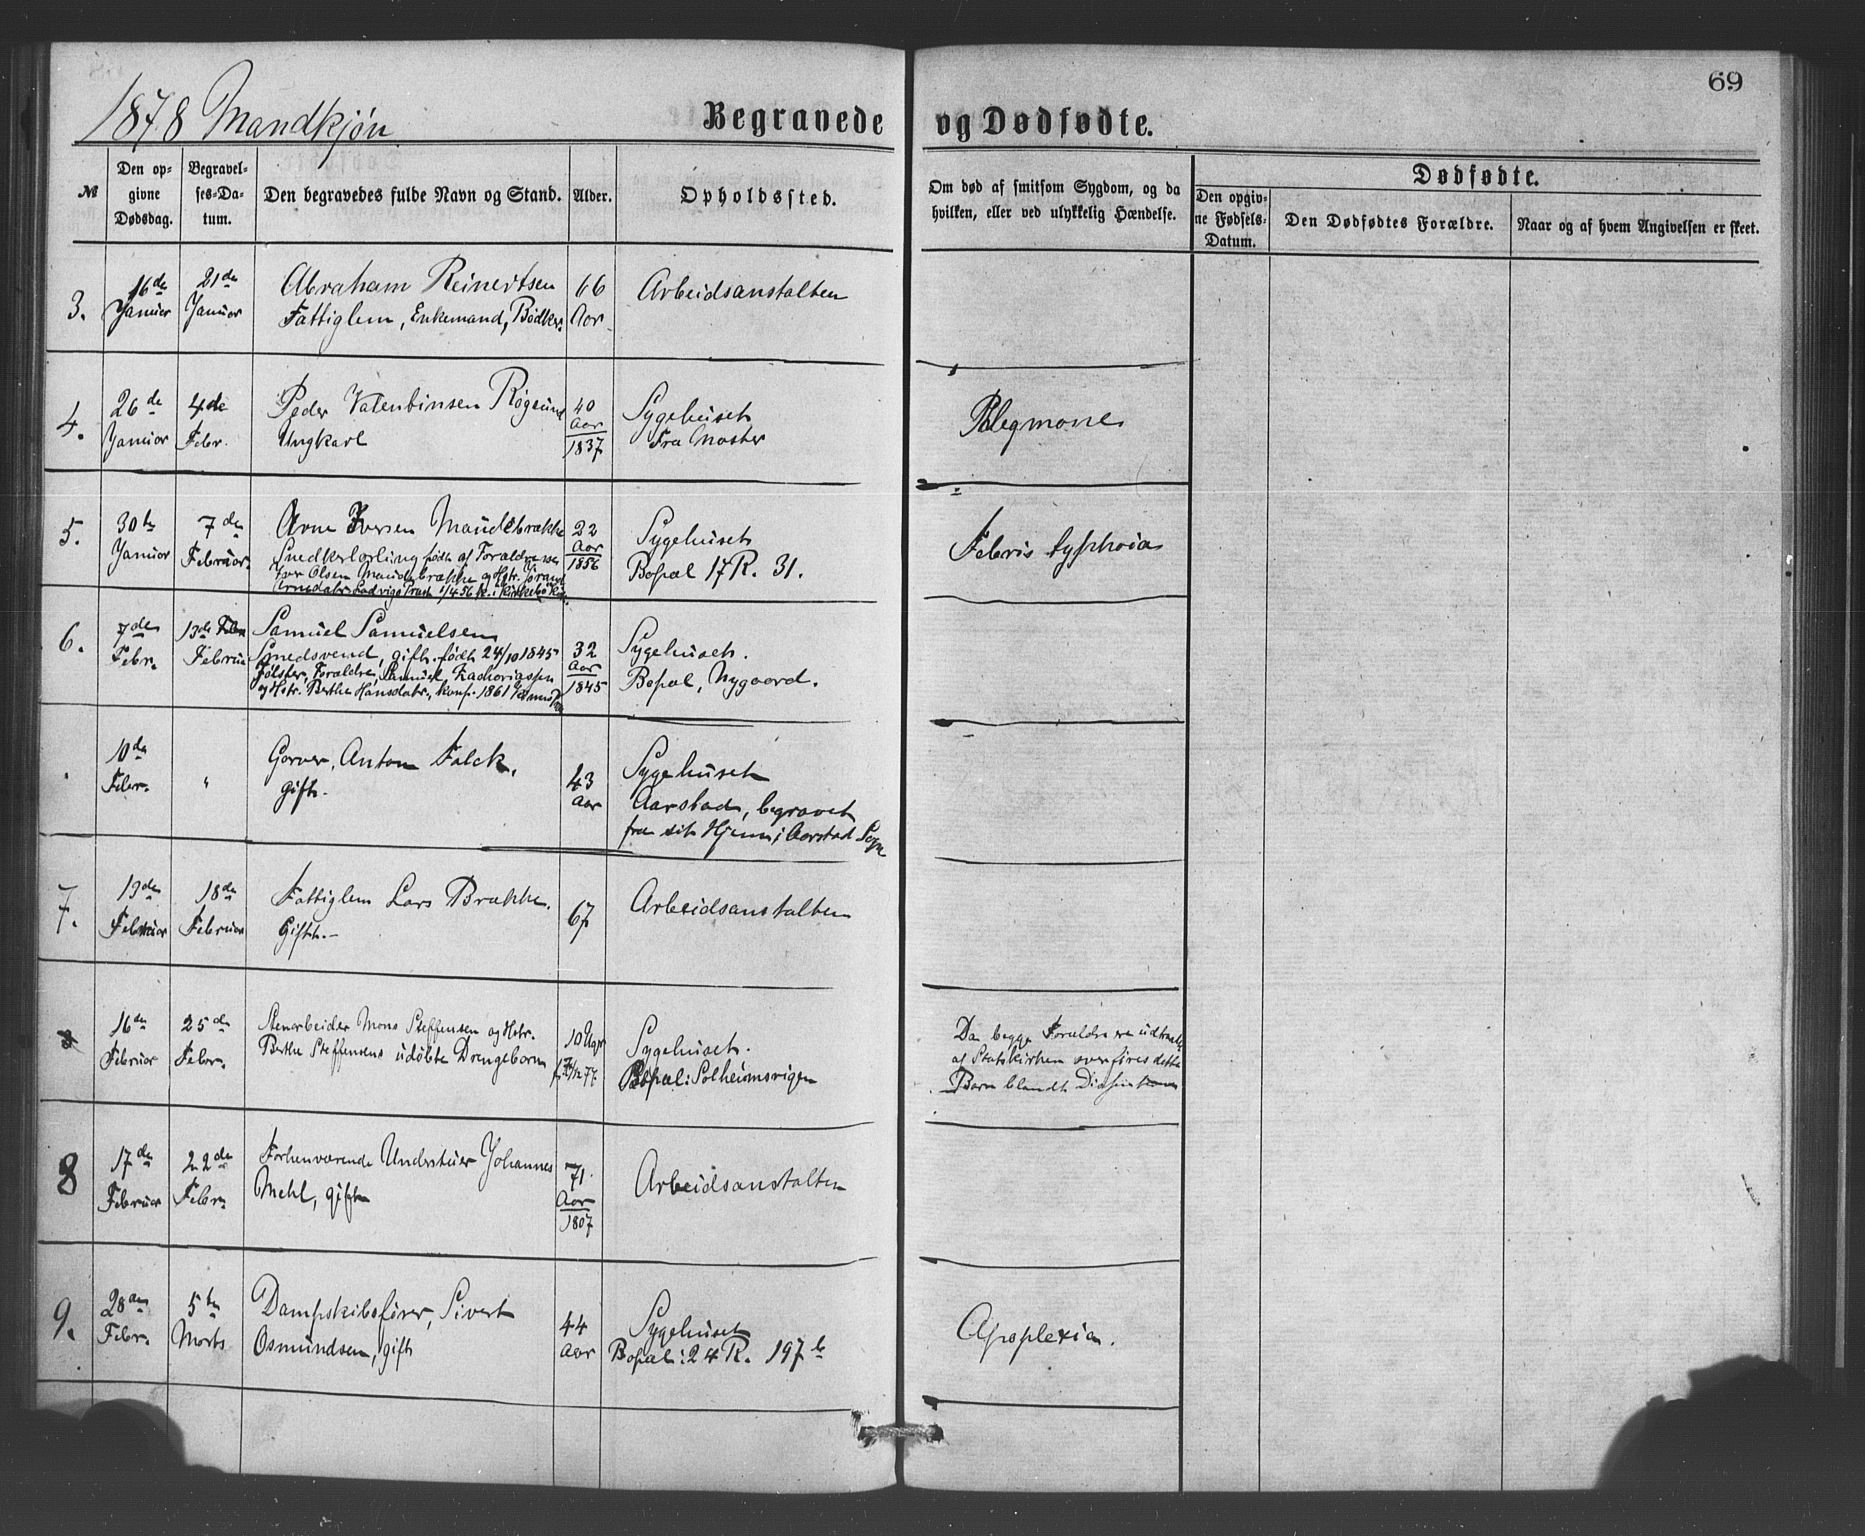 69
1878 Mandkjøn
Begravede og Dødfødte.
№
Den op-
givne
Dødsdag.
Begravel-
ses-Da-
tum.
Den begravedes fulde Navn og Stand.
Alder.
Opholdssted.
Om død af smitsom Sygdom, og da
hvilken, eller ved ulykkelig Hændelse.
Dødfødte.
Den opgiv-
ne Fødsels-
Datum.
Den Dødfødtes Forældre.
Naar og af hvem Angivelsen er skeet.
3.
16de
Januar
21de
Januar
Abraham Reinertsen
Fattiglem, Enkemand, Bødker.
66
Aar
Arbeidsanstalten
4.
26de
Januar
4de
Febr.
Peder Valentinsen Røgsund
Ungkarl
40
Aar
1837
Sygehuset
Fra Moster
Phlegmone
5.
30te
Januar
7de
Februar.
Arne Iversen Maudebrække
Snedkerlærling født af Forældrene
Iver Olsen Maudebrække og Hstr.
22
Aar
1856
Sygehuset
Bopæl 17 R. 31.
Febris typhoia
6.
7de
Febr.
13de
Februar
Samuel Samuelsen
Smedsvend, gift. født 24/10 1845
Jølster, Forældre, Samuel Zachariassen
og Hstr. Berthe Hansdatr., konf. 1861
32
Aar
1845
Sygehuset.
Bopæl, Nygaard.
10de
Febr.
"
Garver, Anton Falck,
gift.
43
Aar
Sygehuset
Aarstad, begravet
fra sit Hjem i Aarstad Sogn
7.
13de
Februar
18de
Februar
Fattiglem Lars Brække.
Gift.-
67
Arbeidsanstalten
16de
Februar
25de
Febr.
Stenarbeider Mons Steffensen og Hstr.
Berthe Steffensens udøbte Drengebarn
10 Uger
/12 77
Sygehuset.
Bopæl: Solheimsvigen
Da begge Forældre ere udtraadte
af Statskirken overføres dette
Barn blandt
8
17de
Februar
22de
Febr.
Forhenværende Underteier Johannes
Mehl, gift
71
Aar
1807
Arbeidsanstalten
9.
28de
Febr.
5te
Marts
Dampskibsfører, Sivert
Osmundsen, gift
44
Aar
Sygehuset
Bopæl: 24 R. 197b
Apoplexia.